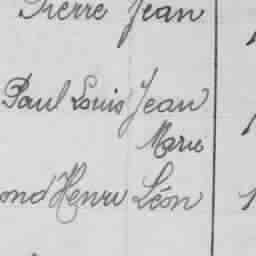 Pierre Jean
Paul Louis Jean
Marie
ond Henri Léon